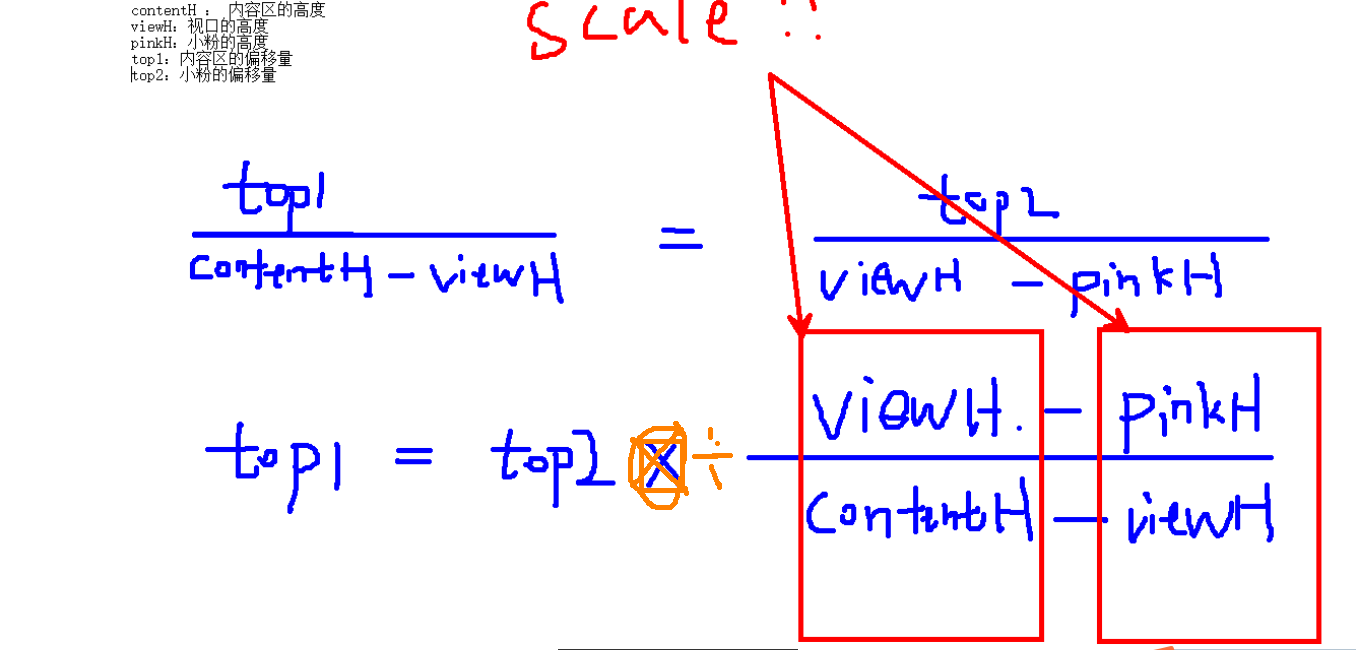 contentH : 内容区的高度
viewH: 视口的高度
pinkH: 小粉的高度
top1: 内容区的偏移量
top2: 小粉的偏移量
scale !!
top1 = top2
contentH - viewH viewH - pinkH
viewH. - pinkH
top1 = top2 × ÷
contentH - viewH